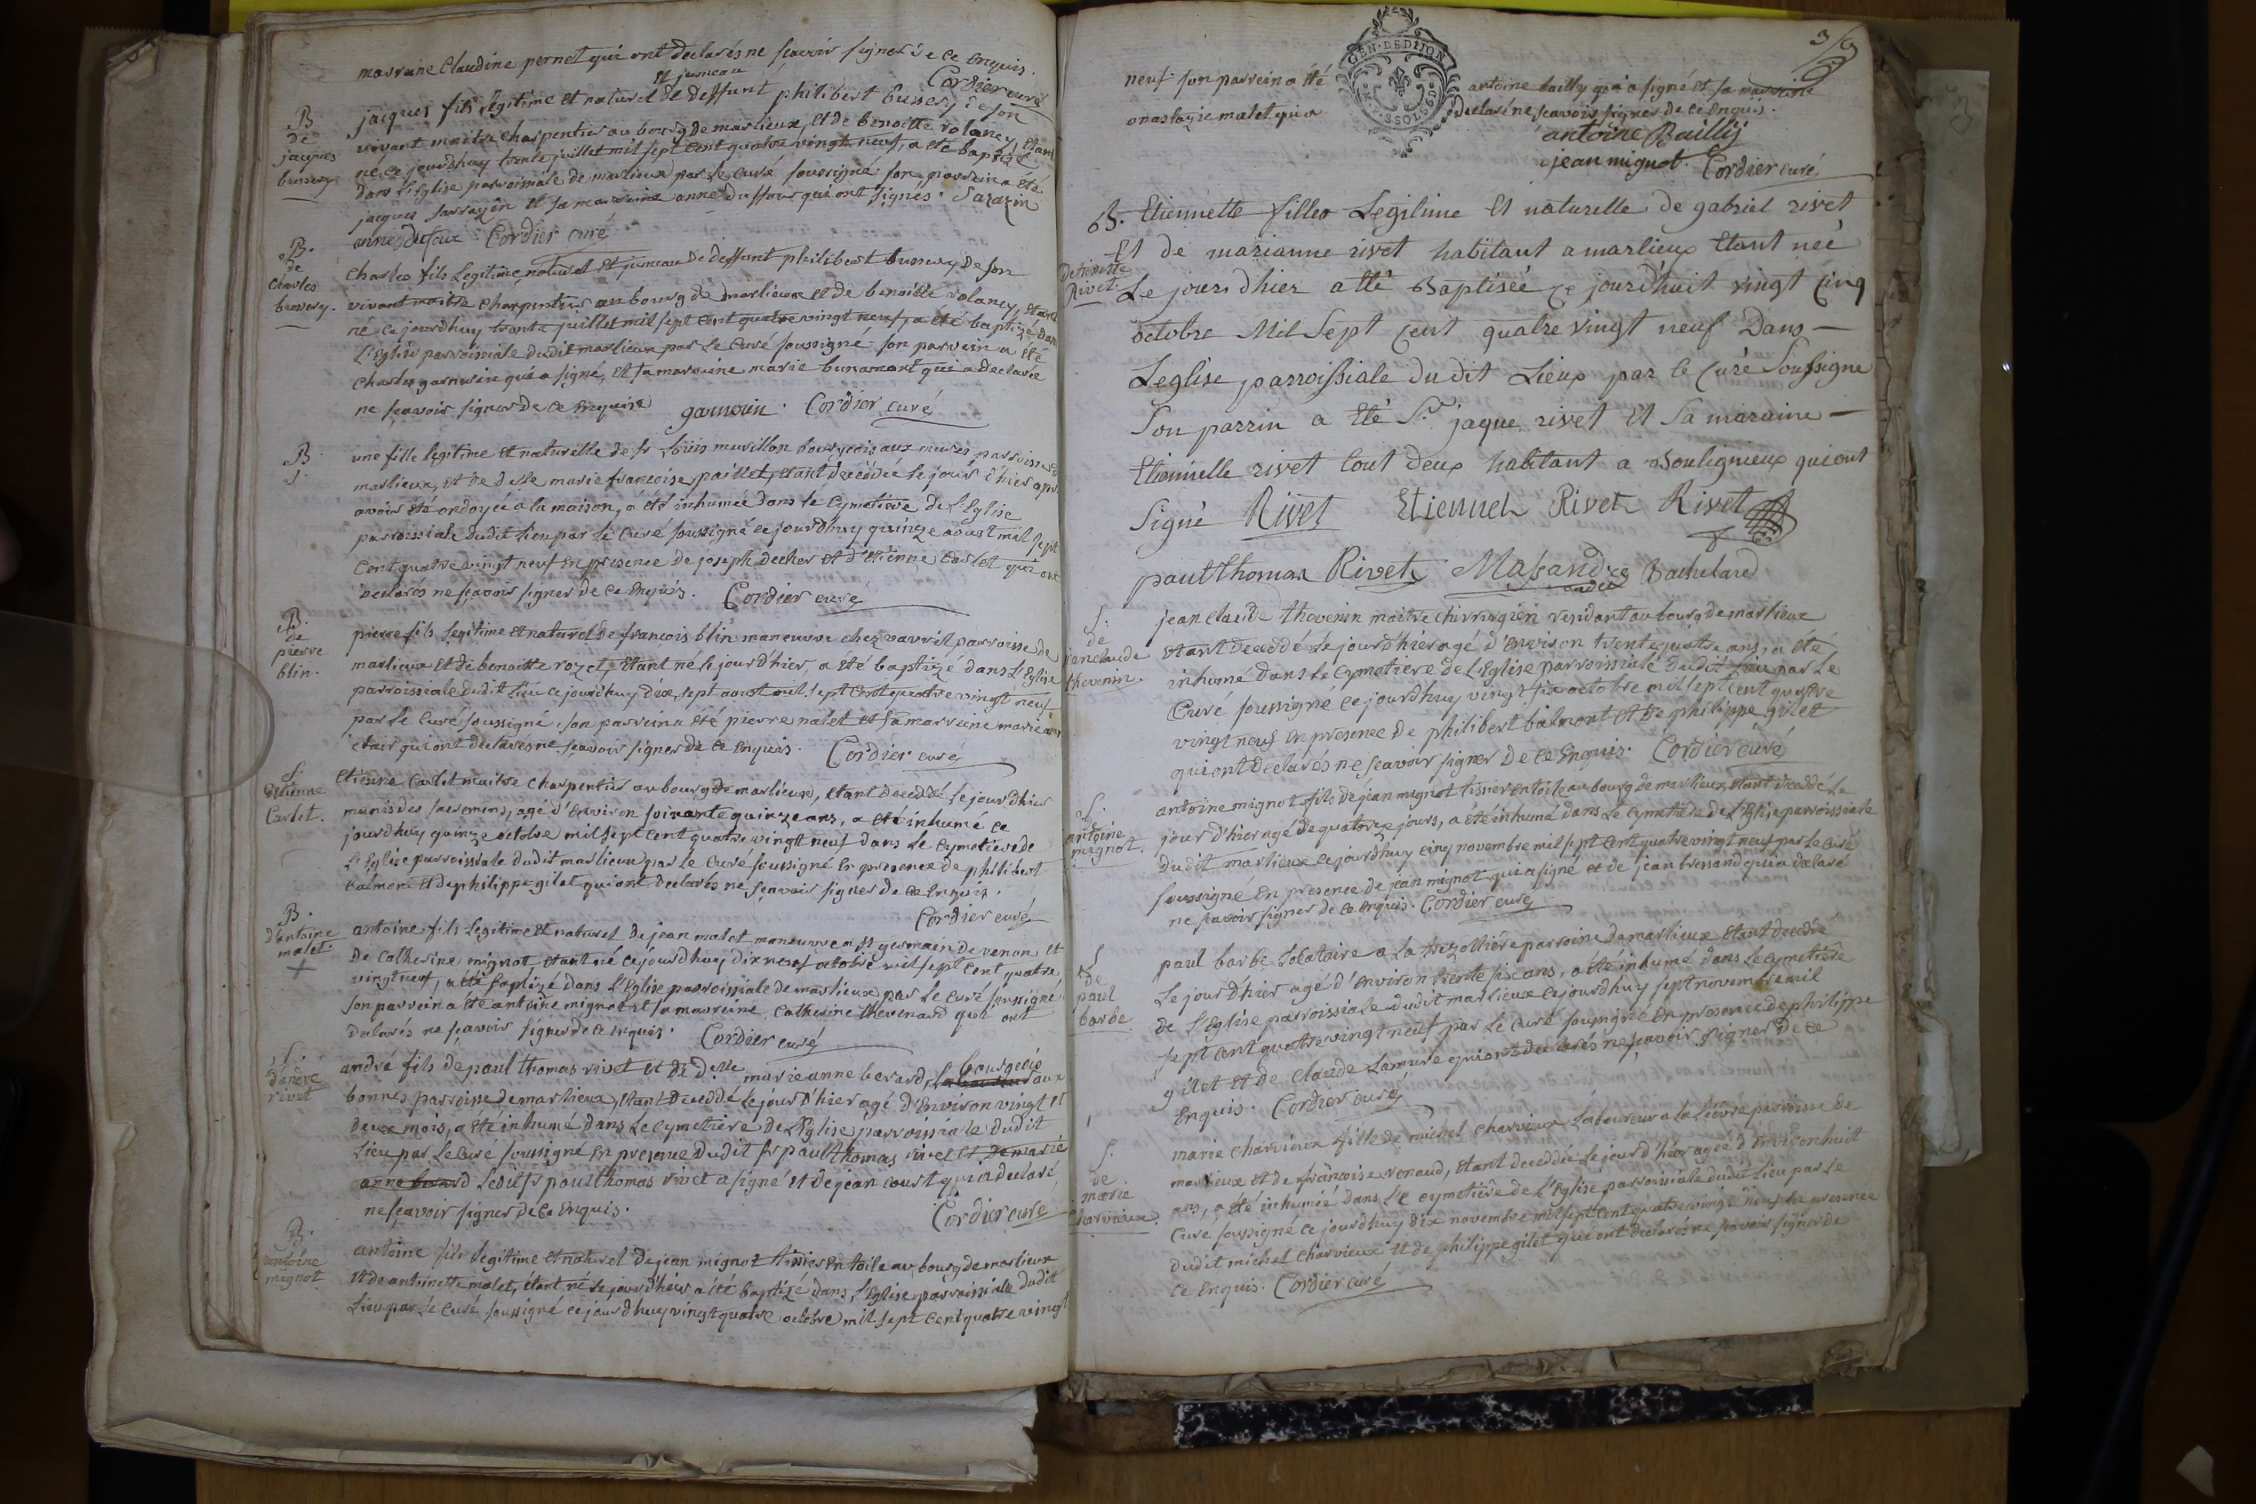 marraine Claudine pernet qui ont declarés ne sçavoir signer de ce Enquis.
Cordier curé
B
de
jaques
bussery
et jumeau
jacques fils legitime et naturel de deffunt philibert bussery de son
vivant maitre charpentier au bourg de marlieux, et de benoitte volancy, etant
né ce jourdhuy trente juillet mil sept cent quatre vingt neuf, a été baptizé
dans l'Eglise parroissiale de marlieux par le curé soussigné son parrein a été
jacques sarrazin et sa marraine anne duffour qui ont signés. Sarazin
anne dufour Cordier curé
B.
de
Charles
bussery.
Charles fils legitime, naturel et jumeau de deffunt philibert bussery de son
vivant maitre charpentier au bourg de marlieux et de benoitte volancy, etant
né ce jourdhuy trente juillet mil sept cent quatre vingt neuf, a été baptizé dans
l'Eglise parroissiale dudit marlieux par le curé soussigné son parrein a été
Charles garnier qui a signé, et sa marraine marie bunamant qui a declarée
ne sçavoir signer de ce Enquise Cordier curé
B
S.
une fille legitime et naturelle de sr Loüis murillon bourgeois aux mures parroisse de
marlieux, et de delle marie francoise paillet, etant decedée le jour d'hier apres
avoir été ondoyée a la maison, a été inhumée dans le Cymetiere de l'Eglise
parroissiale dudit lieu par le curé soussigné ce jourdhuy quinze aoust mil sept
cent quatre vingt neuf en presence de joseph decher et d'etienne Carlet qui ont
declarés ne sçavoir signer de ce Enquis. Cordier curé
B.
de
pierre
blin.
pierre fils legitime et naturel de francois blin maneuvre chez vavril parroisse de
marlieux et de benoitte rozet, etant né le jour d'hier, a été baptizé dans l'Eglise
parroissiale dudit lieu ce jourdhuy dix sept aoust mil sept cent quatre vingt neuf
par le curé soussigné son parrein a été pierre nalet et sa marreine marie
clair qui ont declarés ne sçavoir signer de ce Enquis. Cordier curé
S.
Etienne
Carlet.
Etienne Carlet maitre charpentier au bourg de marlieux, etant decedé le jour d'hier
munis des sacremens, agé d'environ soixante quinze ans, a été inhumé ce
jourdhuy quinze octobre mil sept cent quatre vingt neuf dans le cymetiere de
l'Eglise parroissiale dudit marlieux par le curé soussigné en presence de philibert
balmont et de philippe gilet qui ont declarés ne sçavoir signer de ce Enquis.
Cordier curé
B.
d'antoine
malet
+
antoine fils legitime et naturel de jean malet maneuvre a st germain de renon, et
de Catherine mignot, etant né ce jourdhuy dix neuf octobre mil sept cent quatre
vingt neuf, a été baptizé dans l'Eglise parroissiale de marlieux par le curé soussigné
son parrein a été antoine mignot et sa marreine Catherine thevenard qui ont
declarés ne sçavoir signer de ce Enquis. Cordier curé
S.
d'andré
rivet
andré fils de paul thomas rivet et de delle marie anne berard, bourgeois aux
bonnes parroisse de marlieux, etant decedé le jour d'hier agé d'environ vingt et
deux mois, a été inhumé dans le cymetiere de l'Eglise parroissiale dudit
lieu par le curé soussigné en presence dudit sr paul thomas rivet et de marie
anne berard Ledit sr paul thomas rivet a signé et de jean coust qui a declaré
ne sçavoir signer de ce Enquis.
Cordier curé
B.
antoine
mignot
antoine fils legitime et naturel de jean mignot tissier en toile au bourg de marlieux
et de antoinette malet, etant né le jourd'hier a été baptizé dans l'Eglise parroissiale dudit
lieu par le curé soussigné ce jourdhuy vingt quatre octobre mil sept cent quatre vingt
3/9
GEN·DE DIJON
neuf son parrein a été antoine bailly qui a signé et sa marraine
anastazie malet qui a declaré ne sçavoir signer de ce Enquis.
antoine Baillij
jean mignot. Cordier curé
B.
Detiennette
Rivet.
Etiennette filles Legitime Et naturelle de gabriel rivet
Et de marianne rivet habitant a marlieux Etant neé
Le jours d'hier a été Baptisée Ce jourd'huit vingt Cinq
octobre Mil Sept Cent quatre vingt neuf Dans —
Leglise parroissiale du dit Lieux par le Curé Soussigne
Son parrin a Eté Sr. jaque rivet Et Sa maraine —
Etiennette rivet tout deux habitant a Bouligneux qui ont
Signé Rivet Etiennet Rivet Rivet
paul thomas Rivet Bachelard
S.
de
jean claude
thevenin.
jean Claude thevenin maitre chirurgien residant au bourg de marlieux
etant decedé le jourd'hier agé d'environ trente quatre ans, a été
inhumé dans le Cymetiere de l'Eglise parroissiale dudit lieu par le
Curé soussigné ce jourdhuy vingt six octobre mil sept cent quatre
vingt neuf en presence de philibert balmont et de philippe gilet
qui ont declarés ne sçavoir signer de ce Enquis. Cordier curé
S.
antoine
mignot.
antoine mignot fils de jean mignot tissier en toile au bourg de marlieux, etant decedé le
jour d'hier agé de quatorze jours, a été inhumé dans le Cymetiere de l'Eglise parroissiale
dudit marlieux ce jourdhuy cinq novembre mil sept cent quatre vingt neuf par le curé
soussigné en presence de jean mignot qui a signé et de jean bressand qui a declaré
ne sçavoir signer de ce Enquis. Cordier curé
S
de
paul
barbe
paul barbe locataire a la trezolliere parroisse de marlieux etant decedé
le jour d'hier agé d'environ trente six ans, a été inhumé dans le cymetiere
de l'Eglise parroissiale dudit marlieux ce jourdhuy sept novembre mil
sept cent quatre vingt neuf par le curé soussigné en presence de philippe
gilet et de claude Lamure qui ont declarés ne sçavoir signer de ce
Enquis. Cordier curé
S.
de
marie
charvieux.
marie charvieux fille de michel charvieux laboureur a la lievre parroisse de
marlieux et de francoise renaud, etant decedée le jour d'hier agée d'environ huit
ans, a été inhumée dans le cymetiere de l'Eglise parroissiale dudit lieu par le
curé soussigné ce jourdhuy dix novembre mil sept cent quatre vingt neuf en presence
dudit michel charvieux et de philippe gilet qui ont declarés ne sçavoir signer de
ce Enquis. Cordier curé